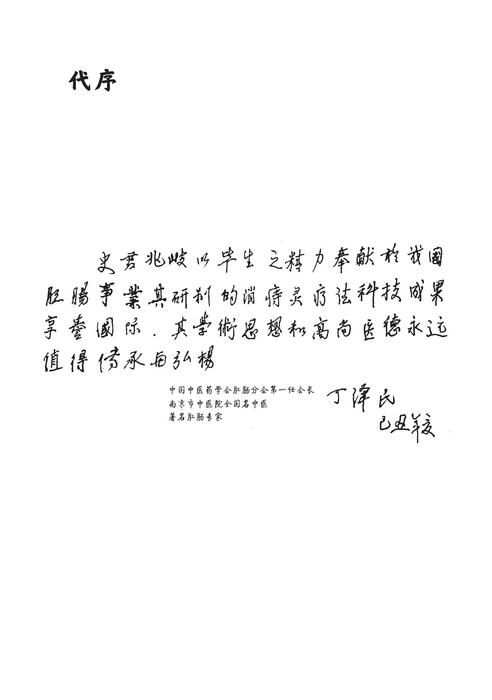 代序
史君兆岐以毕生之精力奉献於我國
肛腸事業其研制的消痔灵疗法科技成果
享誉國际．其學術思想和高尚医德永远
值得传承与弘楊
中国中医药学会肛肠分会第一任会长
南京市中医院全国名中医
著名肛肠专家
丁泽民
己丑年